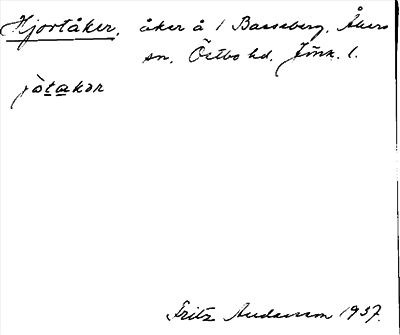 Hjortåker, åker å 1 Basseberg, Åkers
sn, Östbo hd, Jönk. l.
jòtakər
Fritz Andersson 1937.